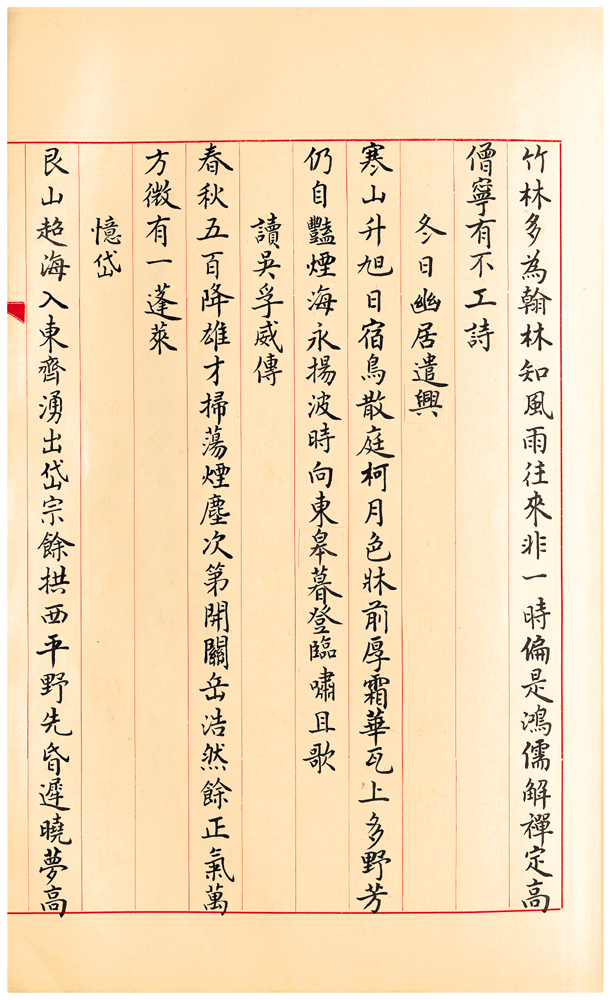 竹林多為翰林知風雨往來非一時偏是鴻儒解禪定高
僧寧有不工詩
冬日幽居遣興
寒山升旭日宿鳥散庭柯月色牀前厚霜華瓦上多野芳
仍自豔煙海永揚波時向東皋暮登臨嘯且歌
讀吳孚威傳
春秋五百降雄才掃蕩煙塵次第開關岳浩然餘正氣萬
方微有一蓬萊
憶岱
艮山超海入東齊湧出岱宗餘拱西平野先昏遲曉夢高